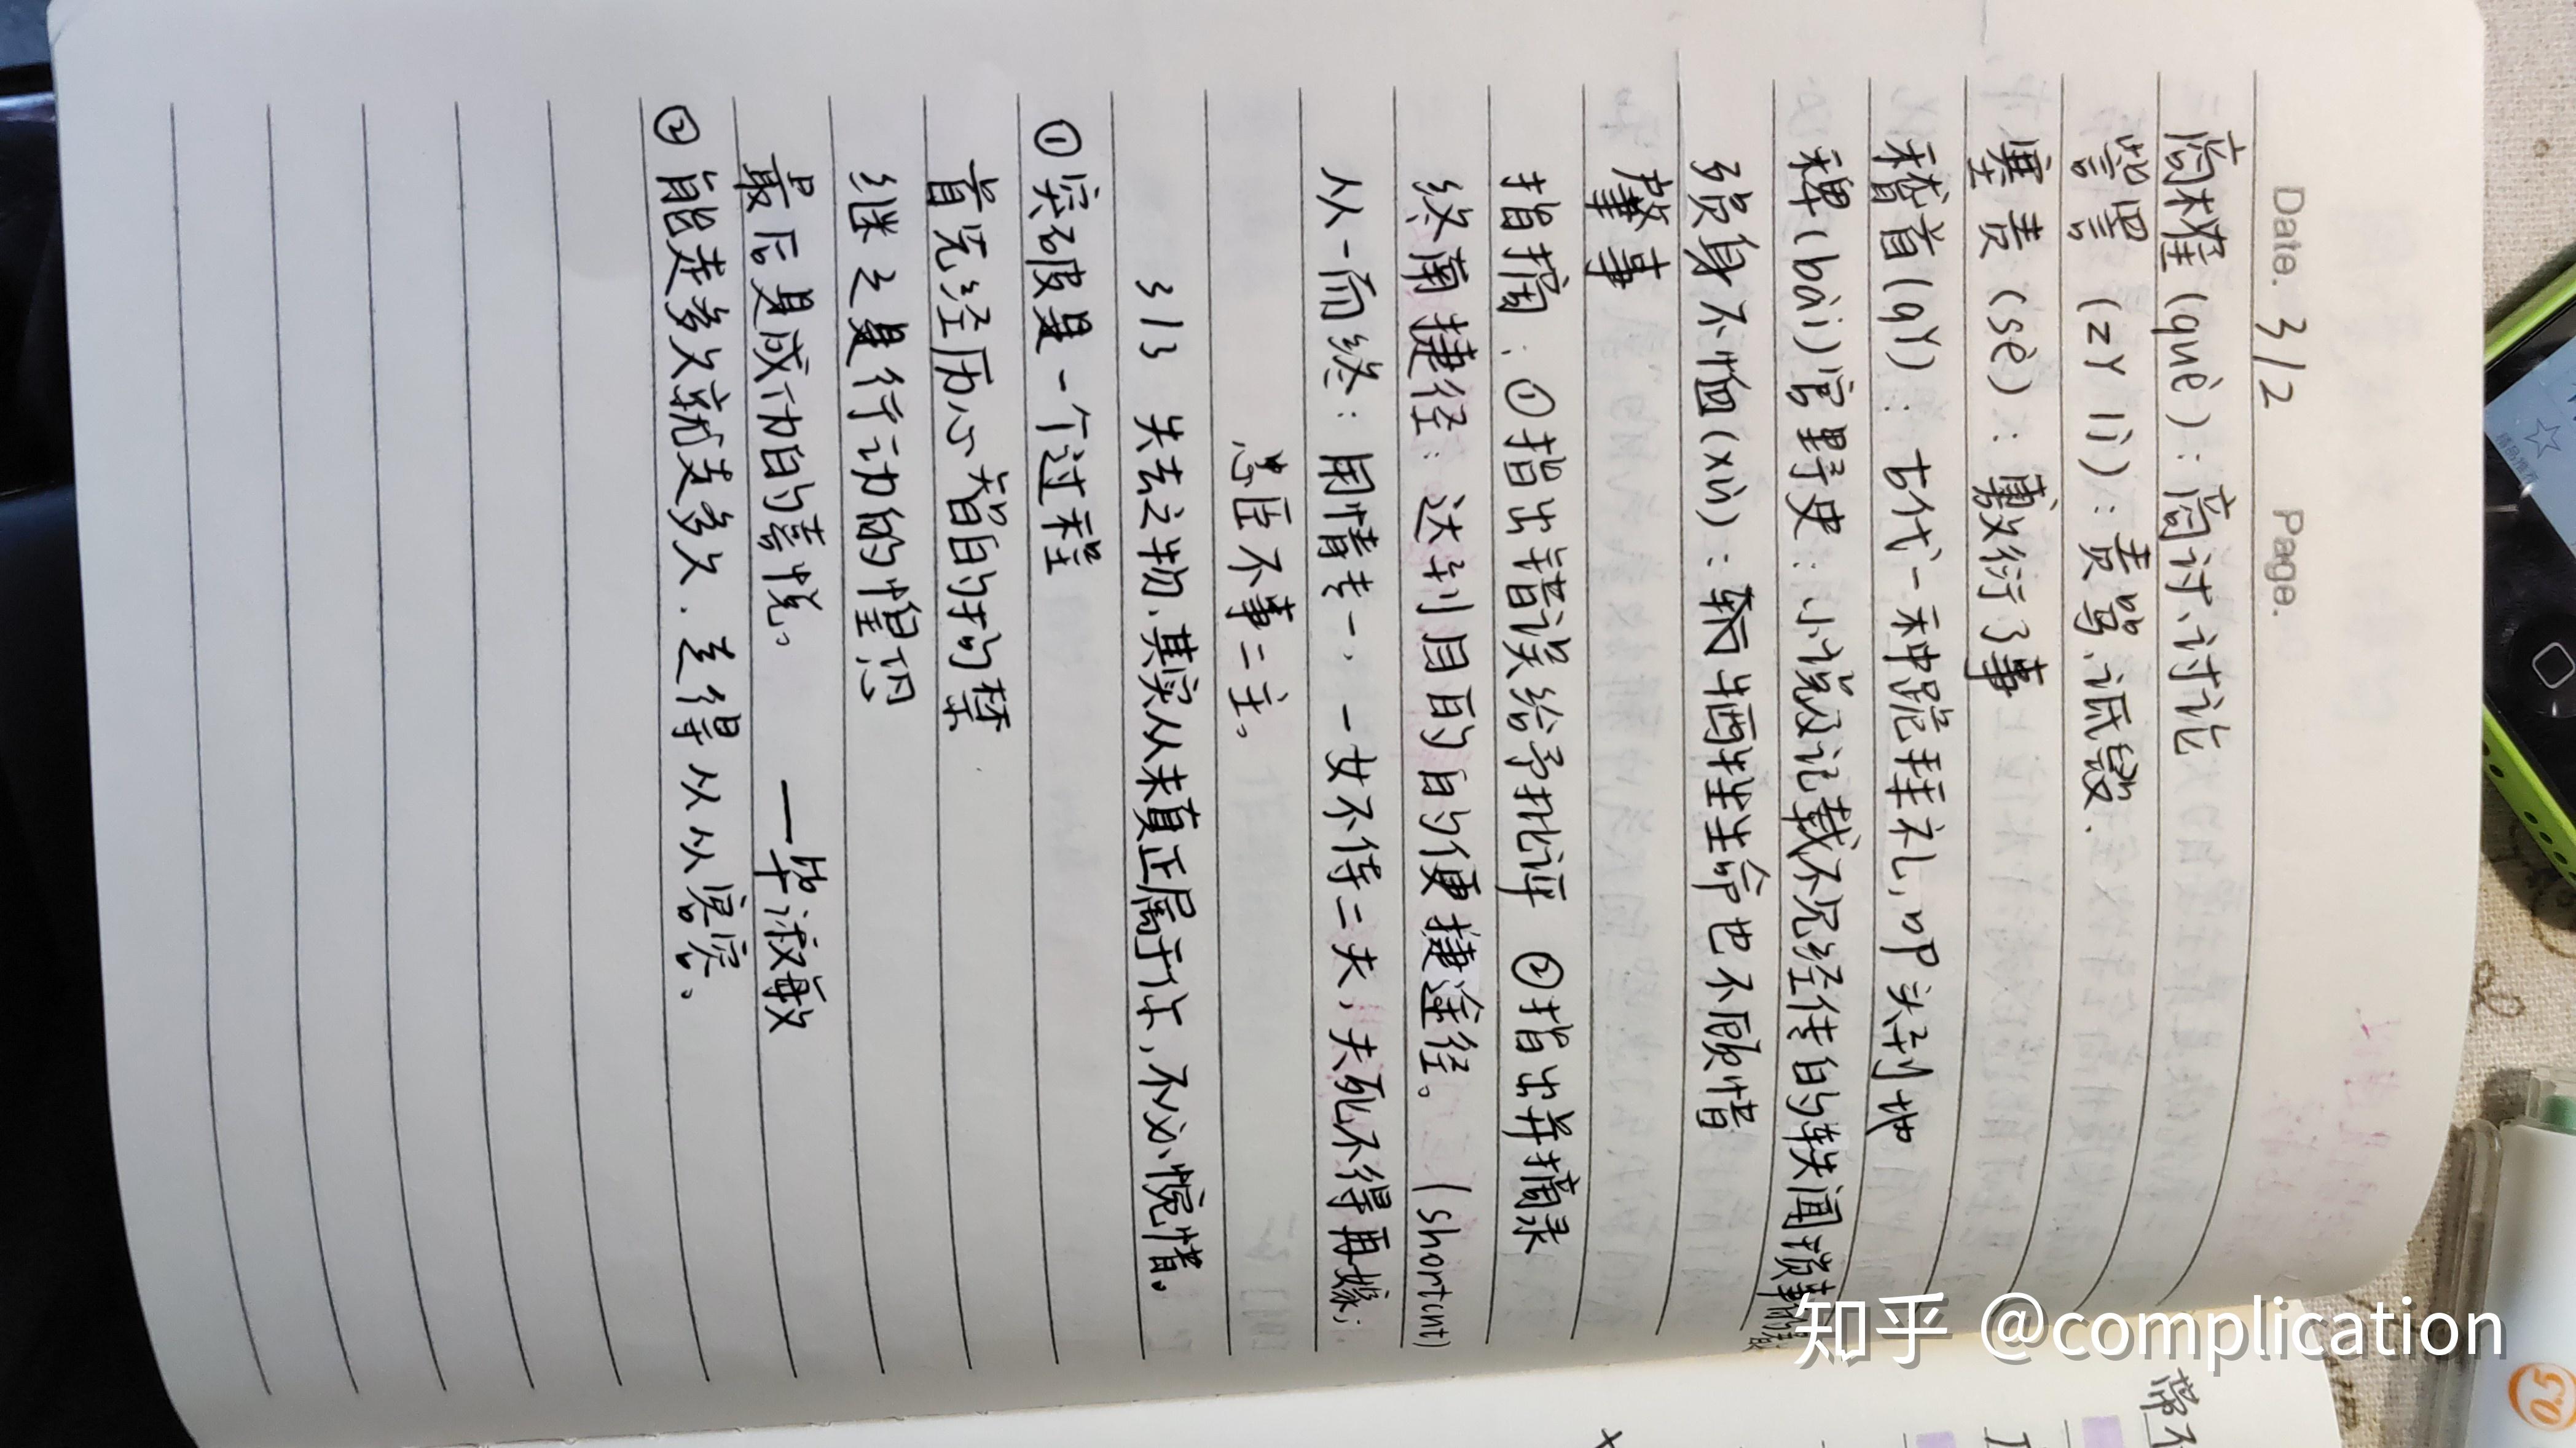 Date. 3/2 Page.
商榷(què)：商讨、讨论
訾詈(zǐ lì)：责骂、诋毁.
塞责(sè)：敷衍了事
稽首(qǐ)：古代一种跪拜礼,叩头到地
稗(bài)官野史：小说及记载不见经传的轶闻琐事的
殒身不恤(xù)：牺牲生命也不顾惜
肇事
指摘：①指出错误给予批评 ②指出并摘录
终南捷径：达到目的的便捷途径。(shortcut)
从一而终：用情专一,一女不侍二夫,夫死不得再嫁;
忠臣不事二主。
3/3 失去之物,其实从未真正属于你,不必惋惜。
①突破是一个过程
首先经历心智的拘禁
继之是行动的惶恐
最后是成功的喜悦。 ——毕淑敏
②能走多久就走多久.走得从从容容。
知乎 @complication
0.5